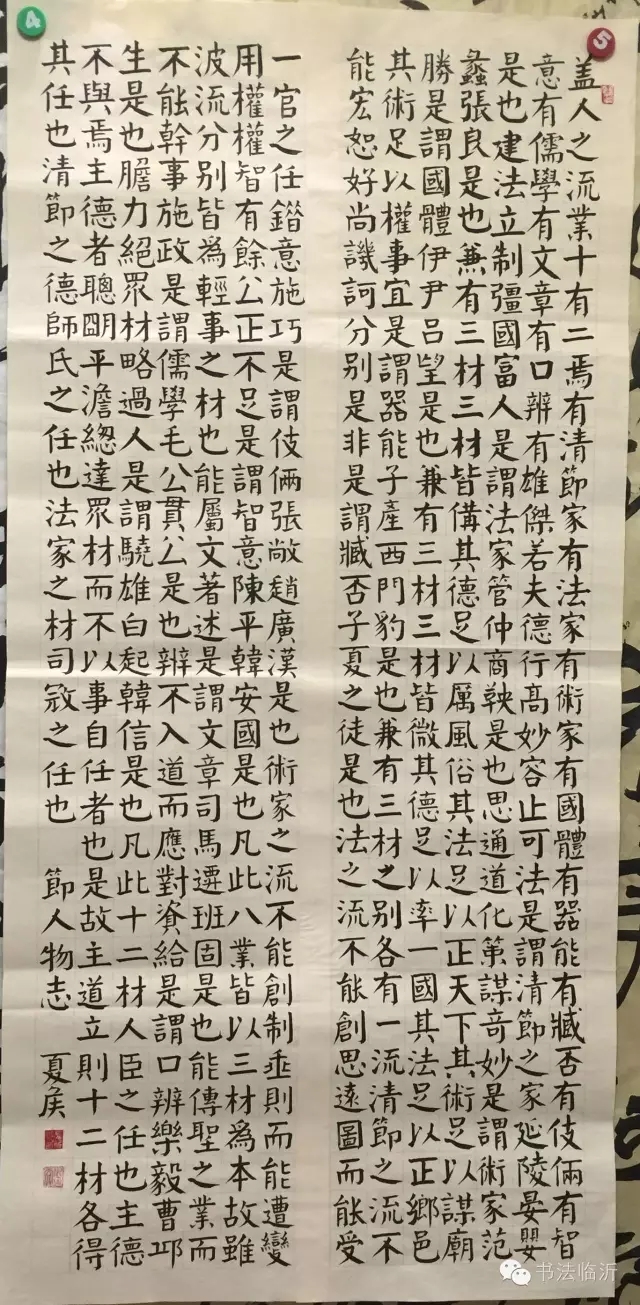 盖人之流業十有二焉有清節家有法家有術家有國體有器能有臧否有伎倆有智
意有儒學有文章有口辨有雄傑若夫德行高妙容止可法是謂清節之家延陵晏嬰
是也建法立制彊國富人是謂法家管仲商鞅是也思通道化策謀奇妙是謂術家范
蠡張良是也兼有三材三材皆備其德足以厲風俗其法足以正天下其術足以謀廟
勝是謂國體伊尹呂望是也兼有三材三材皆微其德足以率一國其法足以正鄉邑
其術足以權事宜是謂器能子產西門豹是也兼有三材之别各有一流清節之流不
能宏恕好尚譏訶分别是非是謂臧否子夏之徒是也法之流不能創思遠圖而能受
一官之任錯意施巧是謂伎倆張敞趙廣漢是也術家之流不能創制垂則而能遭變
用權權智有餘公正不足是謂智意陳平韓安國是也凡此八業皆以三材為本故雖
波流分别皆為輕事之材也能屬文著述是謂文章司馬遷班固是也能傳聖之業而
不能幹事施政是謂儒學毛公貫公是也辨不入道而應對資給是謂口辨樂毅曹邱
生是也膽力絕眾材略過人是謂驍雄白起韓信是也凡此十二材人臣之任也主德
不與焉主德者聰明平澹總達眾材而不以事自任者也是故主道立則十二材各得
其任也清節之德師氏之任也法家之材司寇之任也 節人物志 夏侯
4
5
书法临沂